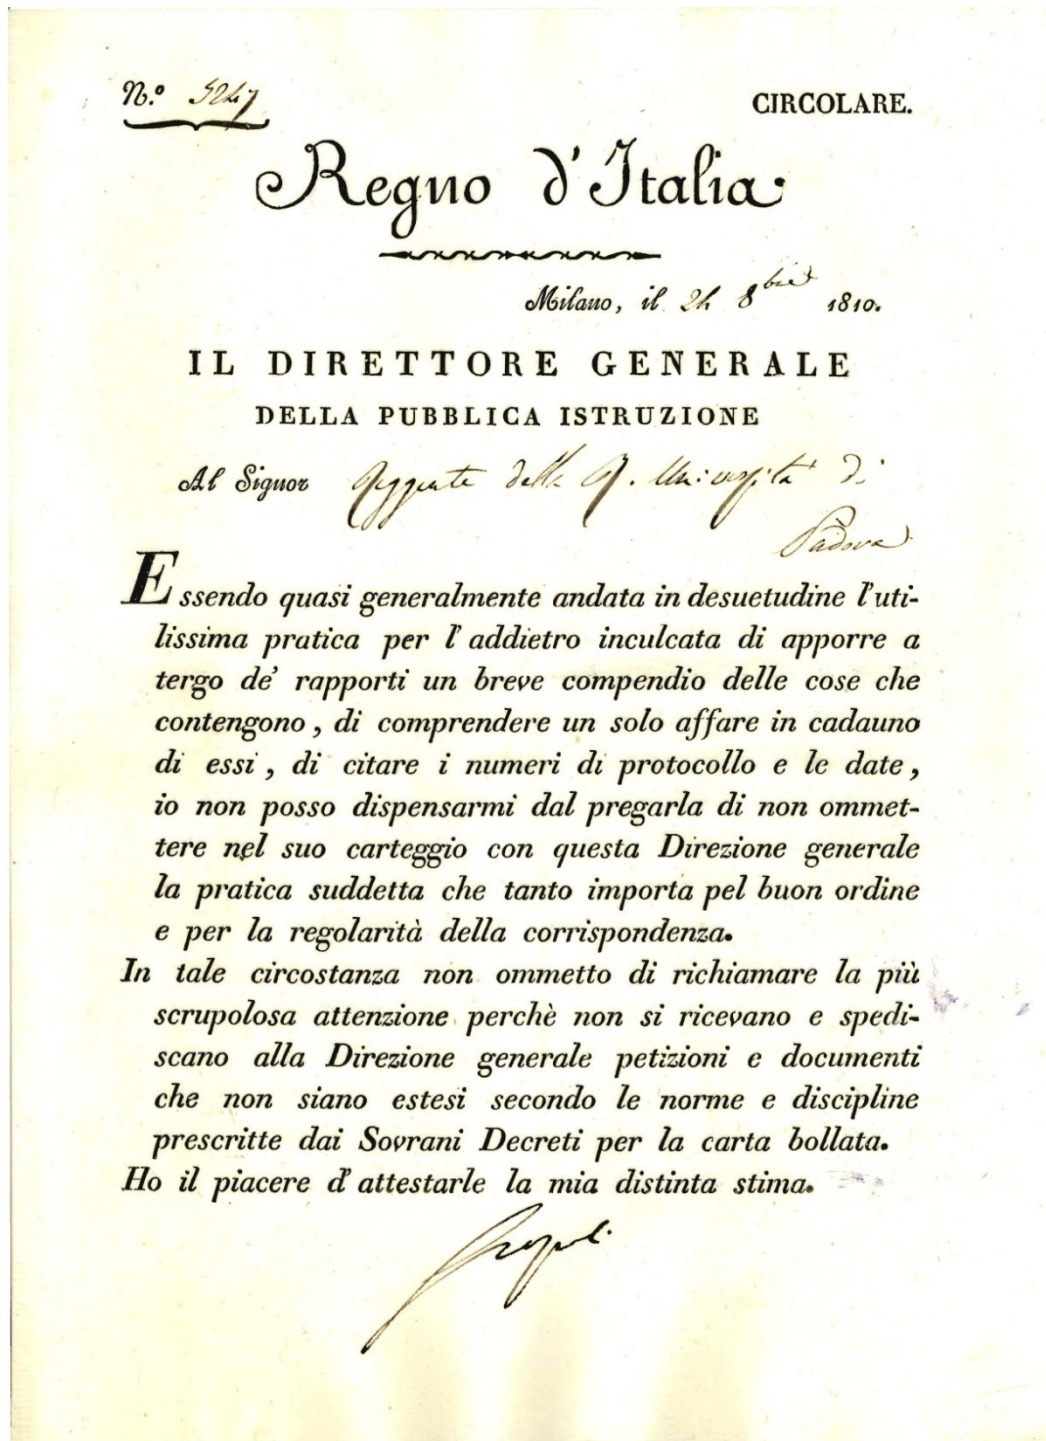 N.º 5247
CIRCOLARE.
Regno d'Italia
Milano, il 24 8bre 1810.
IL DIRETTORE GENERALE
DELLA PUBBLICA ISTRUZIONE
Al Signor Reggente della R. Università di
Padova
Essendo quasi generalmente andata in desuetudine l'uti-
lissima pratica per l'addietro inculcata di apporre a
tergo de' rapporti un breve compendio delle cose che
contengono, di comprendere un solo affare in cadauno
di essi, di citare i numeri di protocollo e le date,
io non posso dispensarmi dal pregarla di non ommet-
tere nel suo carteggio con questa Direzione generale
la pratica suddetta che tanto importa pel buon ordine
e per la regolarità della corrispondenza.
In tale circostanza non ommetto di richiamare la più
scrupolosa attenzione perchè non si ricevano e spedi-
scano alla Direzione generale petizioni e documenti
che non siano estesi secondo le norme e discipline
prescritte dai Sovrani Decreti per la carta bollata.
Ho il piacere d'attestarle la mia distinta stima.